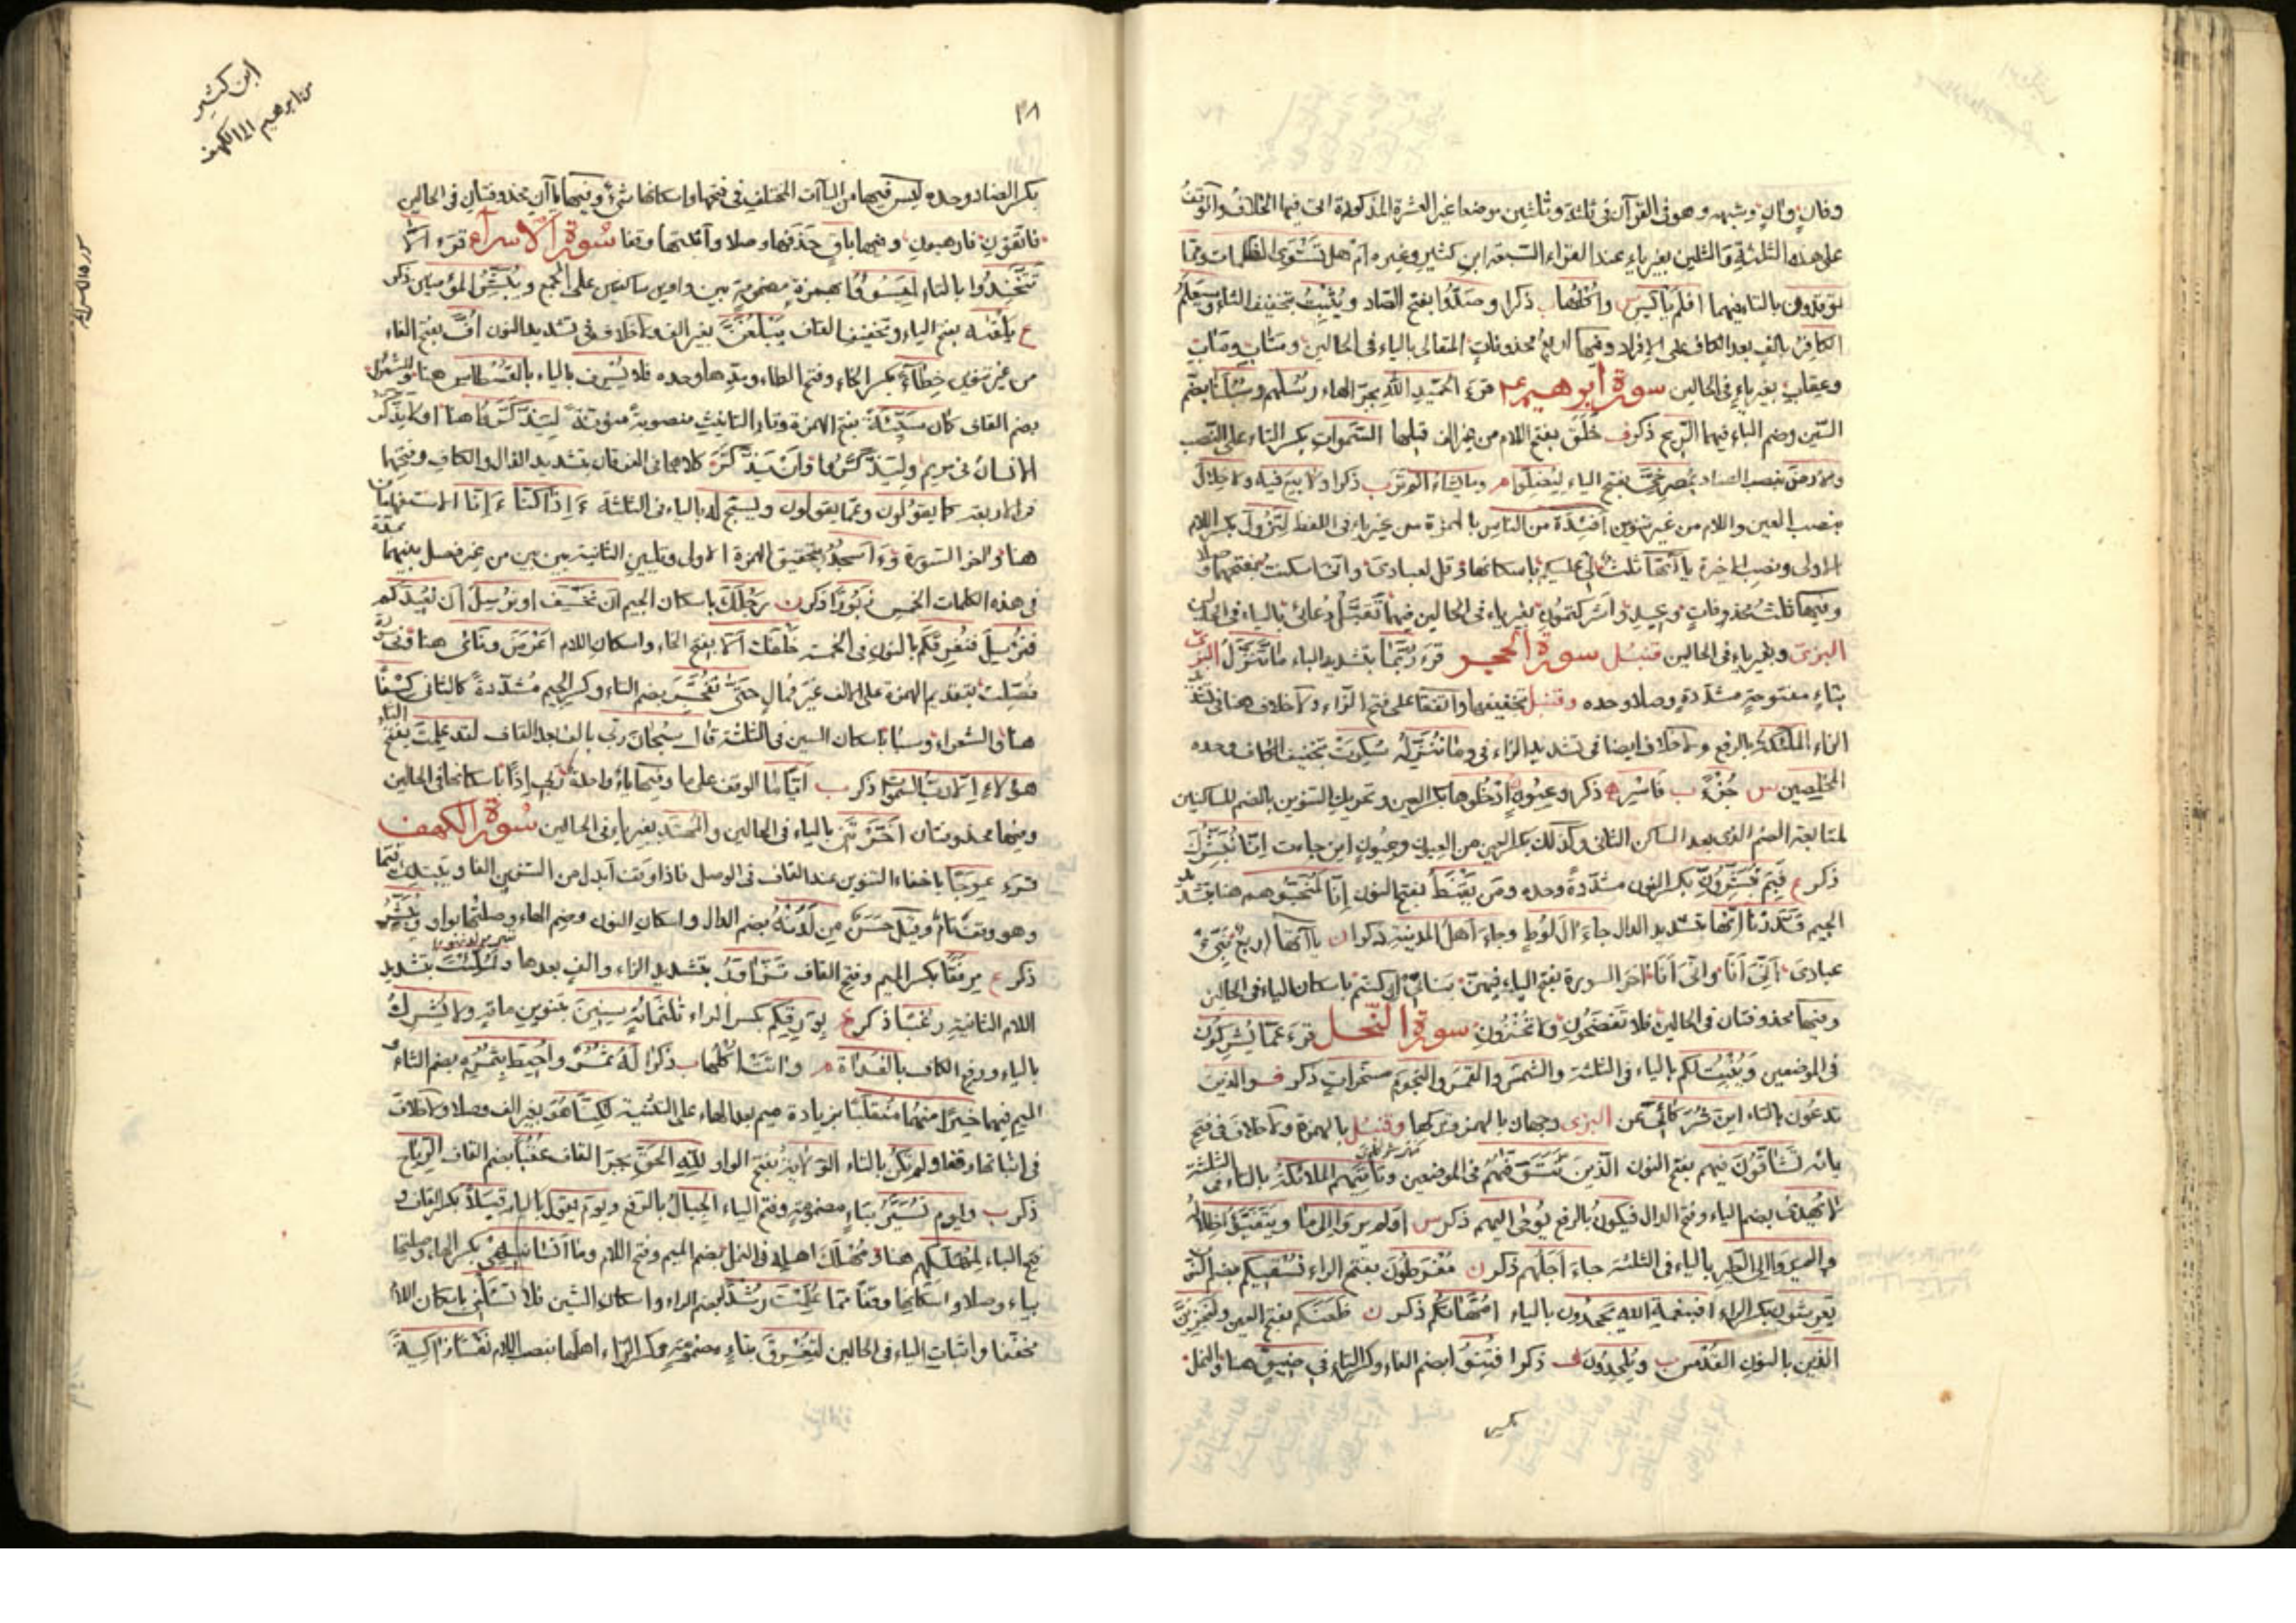 وفانٍ وانٍ وشبهه وهو فى القرآن فى ثلثة وثلثين موضعا غير العشرة المذكورة التى فيها الخلاف والوقف
على هذه الثلثة والثلثين بغير ياء عند القراء السبعة ابن كثير وغيره ام هل تستوى الظلمات ومما
توقدون بالتاء فيهما افلم يايس س واكلها ب ذكرا وصدّوا بفتح الصاد ويثبت بتخفيف الثاء وسيعلم
الكافر بالف بعد الكاف على الإفراد وفيها اربع محذوفات المتعالى بالياء فى الحالين ومتاب ومآب
وعقاب بغير ياء فى الحالين سورة ابرهيم عم قرء الحميد الله بجر الهاء رسلهم وسبلنا بضم
السين وضم الباء فيهما الريح ذكر ف خلق بفتح اللام من غير الف قبلها السموات بكسر التاء على النصب
والارض بنصب الضاد بمصرخىّ بفتح الياء ليضلوا م وما يشاء الم تر ب ذكرا ولا بيع فيه ولا خلال
بنصب العين واللام من غير تنوين افئدة من الناس بالهمزة من غير ياء فى اللفظ لتزول بكسر اللام
الاولى ونصب الاخيرة ياآتها ثلث لى عليكم باسكانها وقل لعبادى وانى اسكنت بفتحهما وصلا
وفيها ثلث محذوفات وعيد واشركتمون بغير ياء فى الحالين فيهما تقبل دعائى بالياء فى الحالين
البزى وبغير ياء فى الحالين قنبل سورة الحجر قرء ربّما بتشديد الباء ما تنزل البزى
بتاء مفتوحة مشددة وصلا وحده وقنبل بتخفيفها واتفقا على فتح الزاء ولا خلاف هنا فى تشديد
الزاء الملئكة بالرفع ولا خلاف ايضا فى تشديد الزاء فى وما ننزله سكرت بتخفيف الكاف وحده
المخلصين س جزء ب فاسر ه ذكر وعيون ادخلوها بكسر العين وتحريك التنوين بالضم للساكنين
لمتابعة الضم الذى بعد الساكن الثانى وكذلك بكسر العين من العيون وعيون اين جاءت انا نبشرك
ذكر ع فبم تبشرونّ بكسر النون مشددة وحده ومن يقنط بفتح النون انا لمنجوهم هنا بتشديد
الجيم قدرنا انها بتشديد الدال جاء ال لوط وجاء اهل المدينة ذكرا ن ياآتها اربع نبئ
عبادى انى انا وانى انا اخر السورة بفتح الياء فيهن بناتى ان كنتم باسكان الياء فى الحالين
وفيها محذوفتان فى الحالين فلا تفضحون ولا تخزون سورة النحل قرء عما يشركون
فى الموضعين وينبت لكم بالياء فى الثلثة والشمس والقمر والنجوم مسخرات ذكر ف والذين
تدعون بالتاء اين شركائى عن البزى وجهان بالهمز وتركها وقنبل بالهمزة ولا خلاف فى فتح
يائه تشاقون فيهم بفتح النون الذين تتوفيهم فى الموضعين وتاتيهم الملائكة بالتاء فى الثلثة
لا يهدى بضم الياء وفتح الدال فيكون بالرفع يوحى اليهم ذكر س اولم يروا الى ما ويتفيؤا ظلاله
والم يروا الى الطير بالياء فى الثلثة جاء اجلهم ذكر ن مفرطون بفتح الراء نسقيكم بضم النون
يعرشون بكسر الراء افبنعمة الله يجحدون بالياء امهاتكم ذكر ن ظعنكم بفتح العين ولنجزينّ
الذين بالنون القدس ب ويلحدون ف ذكرا فتنوا بضم الفاء وكسر التاء فى ضيق هنا والنمل
بكسر
ابن كثير
من ابرهيم الى الكهف
٢٨
بكسر الضاد وحده ليس فيها من الياآت المختلف فى فتحها واسكانها شئ وفيها ياآن محذوفتان فى الحالين
فاتقون فارهبون وفيها باق حذفها وصلا واثبتها وقفا سورة الاسراء قرء الّا
تتخذوا بالتاء ليسوؤا بهمزة مضمومة بين واوين ساكنين على الجمع ويبشر المؤمنين ذكر
ع يلقيه بفتح الياء وتخفيف القاف يبلغنّ بغير الف ولا خلاف فى تشديد النون افّ بفتح الفاء
من غير تنوين خطآء بكسر الخاء وفتح الطاء ومدها وحده فلا يسرف بالياء بالقسطاس هنا والشعراء
بضم القاف كان سيئة بفتح الهمزة وتاء التانيث منصوبة منونة ليذّكّروا هنا اولا يذّكّر
الانسان فى مريم وليذّكّروا وان يذّكّر كلاهما فى الفرقان بتشديد الذال والكاف وفتحها
فى الاربعة كما يقولون وعما يقولون ويسبح له بالياء فى الثلثة ءاذا كنا ءانا الاستفهامان
هنا واخر السورة وءاسجد بتحقيق الهمزة الاولى وتليين الثانية بين بين من غير فصل بينهما
فى هذه الكلمات الخمس زبورا ذكر ن رجلك باسكان الجيم ان نخسف او نرسل ان نعيدكم
فنرسل فنغرقكم بالنون فى الخمسة خلفك الا بفتح الخاء واسكان اللام اعرض ونأى هنا وفى
فصلت بتقديم الهمزة على الالف غير ممال حتى تفجّر بضم التاء وكسر الجيم مشددة كالثانى كسفا
هنا والشعراء وسبأ باسكان السين فى الثلثة قال سبحان ربى بالف بعد القاف لقد علمت بفتح التاء
هؤلاء الا رب السموات ذكر ب اياما الوقف على ما وفيها ياء واحدة ربى اذا باسكانها فى الحالين
وفيها محذوفتان اخرتن بالياء فى الحالين والمهتد بغير ياء فى الحالين سورة الكهف
قرء عوجا باخفاء التنوين عند القاف فى الوصل فاذا وقف ابدل من التنوين الفا ويبتدئ قيما
وهو وقف تام وقيل حسن من لدنه بضم الدال واسكان النون وضم الهاء وصلتها بواو ويبشر
ذكر ع مرفقا بكسر الميم وفتح الفاء تزّاور بتشديد الزاء والف بعدها ولملّئت بتشديد
اللام الثانية رعبا ذكر ع بورقكم بكسر الراء ثلثمائة سنين بتنوين مائة ولا يشرك
بالياء ورفع الكاف بالغداة م واتت اكلها ب ذكرا له ثمر واحيط بثمره بضم الثاء و
الميم فيهما خيرا منهما منقلبا بزيادة ميم بعد الهاء على التثنية لكنا هو بغير الف وصلا ولا خلاف
فى اثباتها وقفا ولم تكن بالتاء الولاية بفتح الواو لله الحق بجر القاف عقبا بضم القاف الرياح
ذكر ب ويوم تسيّر بتاء مضمومة وفتح الياء الجبال بالرفع ويوم يقول بالياء قبلا بكسر القاف و
فتح الباء لمهلكهم هنا ومهلك اهله فى النمل بضم الميم وفتح اللام وما انسانيه بكسر الهاء وصلتها
بياء وصلا واسكانها وقفا مما علمت رشدا بضم الراء واسكان الشين فلا تسئلنى باسكان اللام
مخففا واثبات الياء فى الحالين لتغرق بتاء مضمومة وكسر الراء اهلها بنصب اللام نفسا زاكية